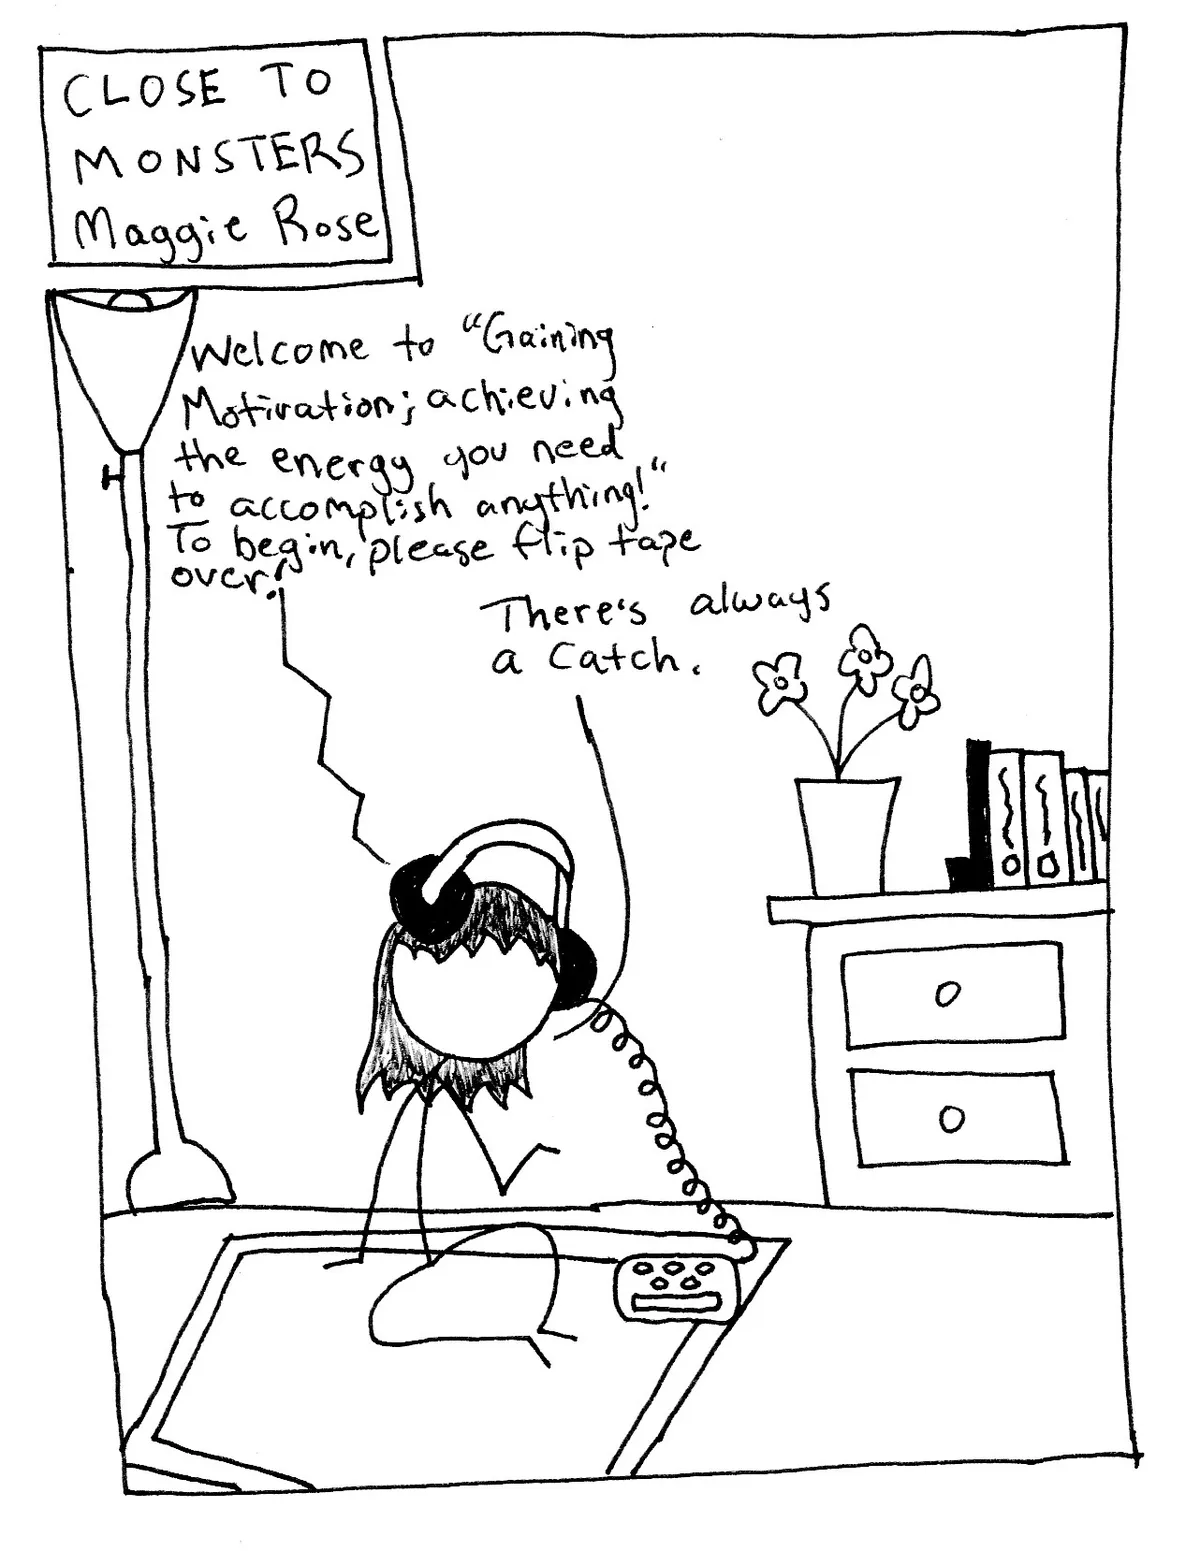 CLOSE TO
MONSTERS
Maggie Rose
Welcome to "Gaining
Motivation; achieving
the energy you need
to accomplish anything!"
To begin, please flip tape
over!
There's always
a catch.